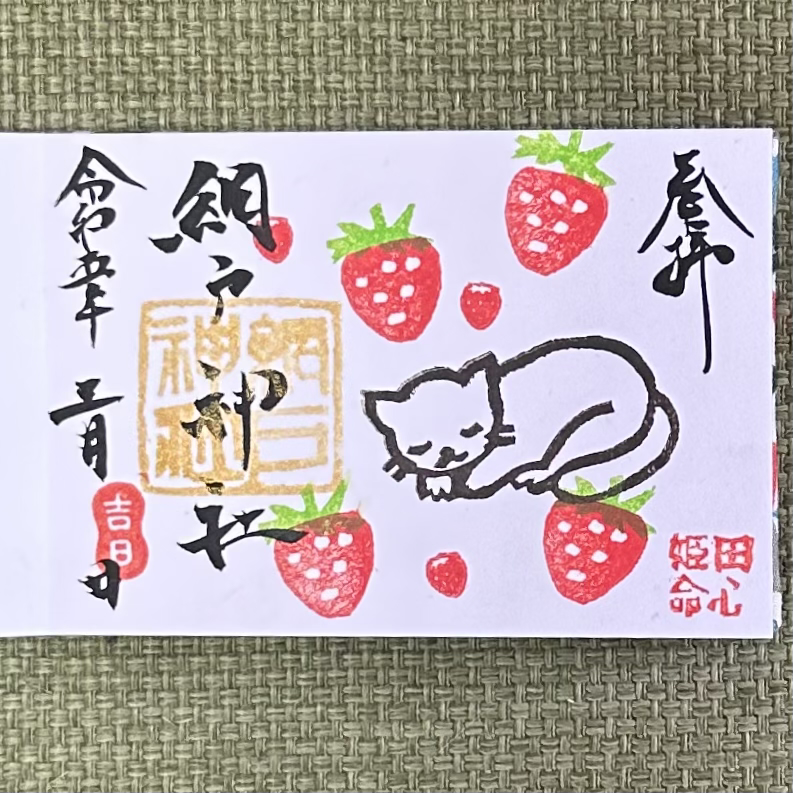 奉拝
田心
姫命
網戸神社
網戸
神社
令和五年
三月
吉日
日